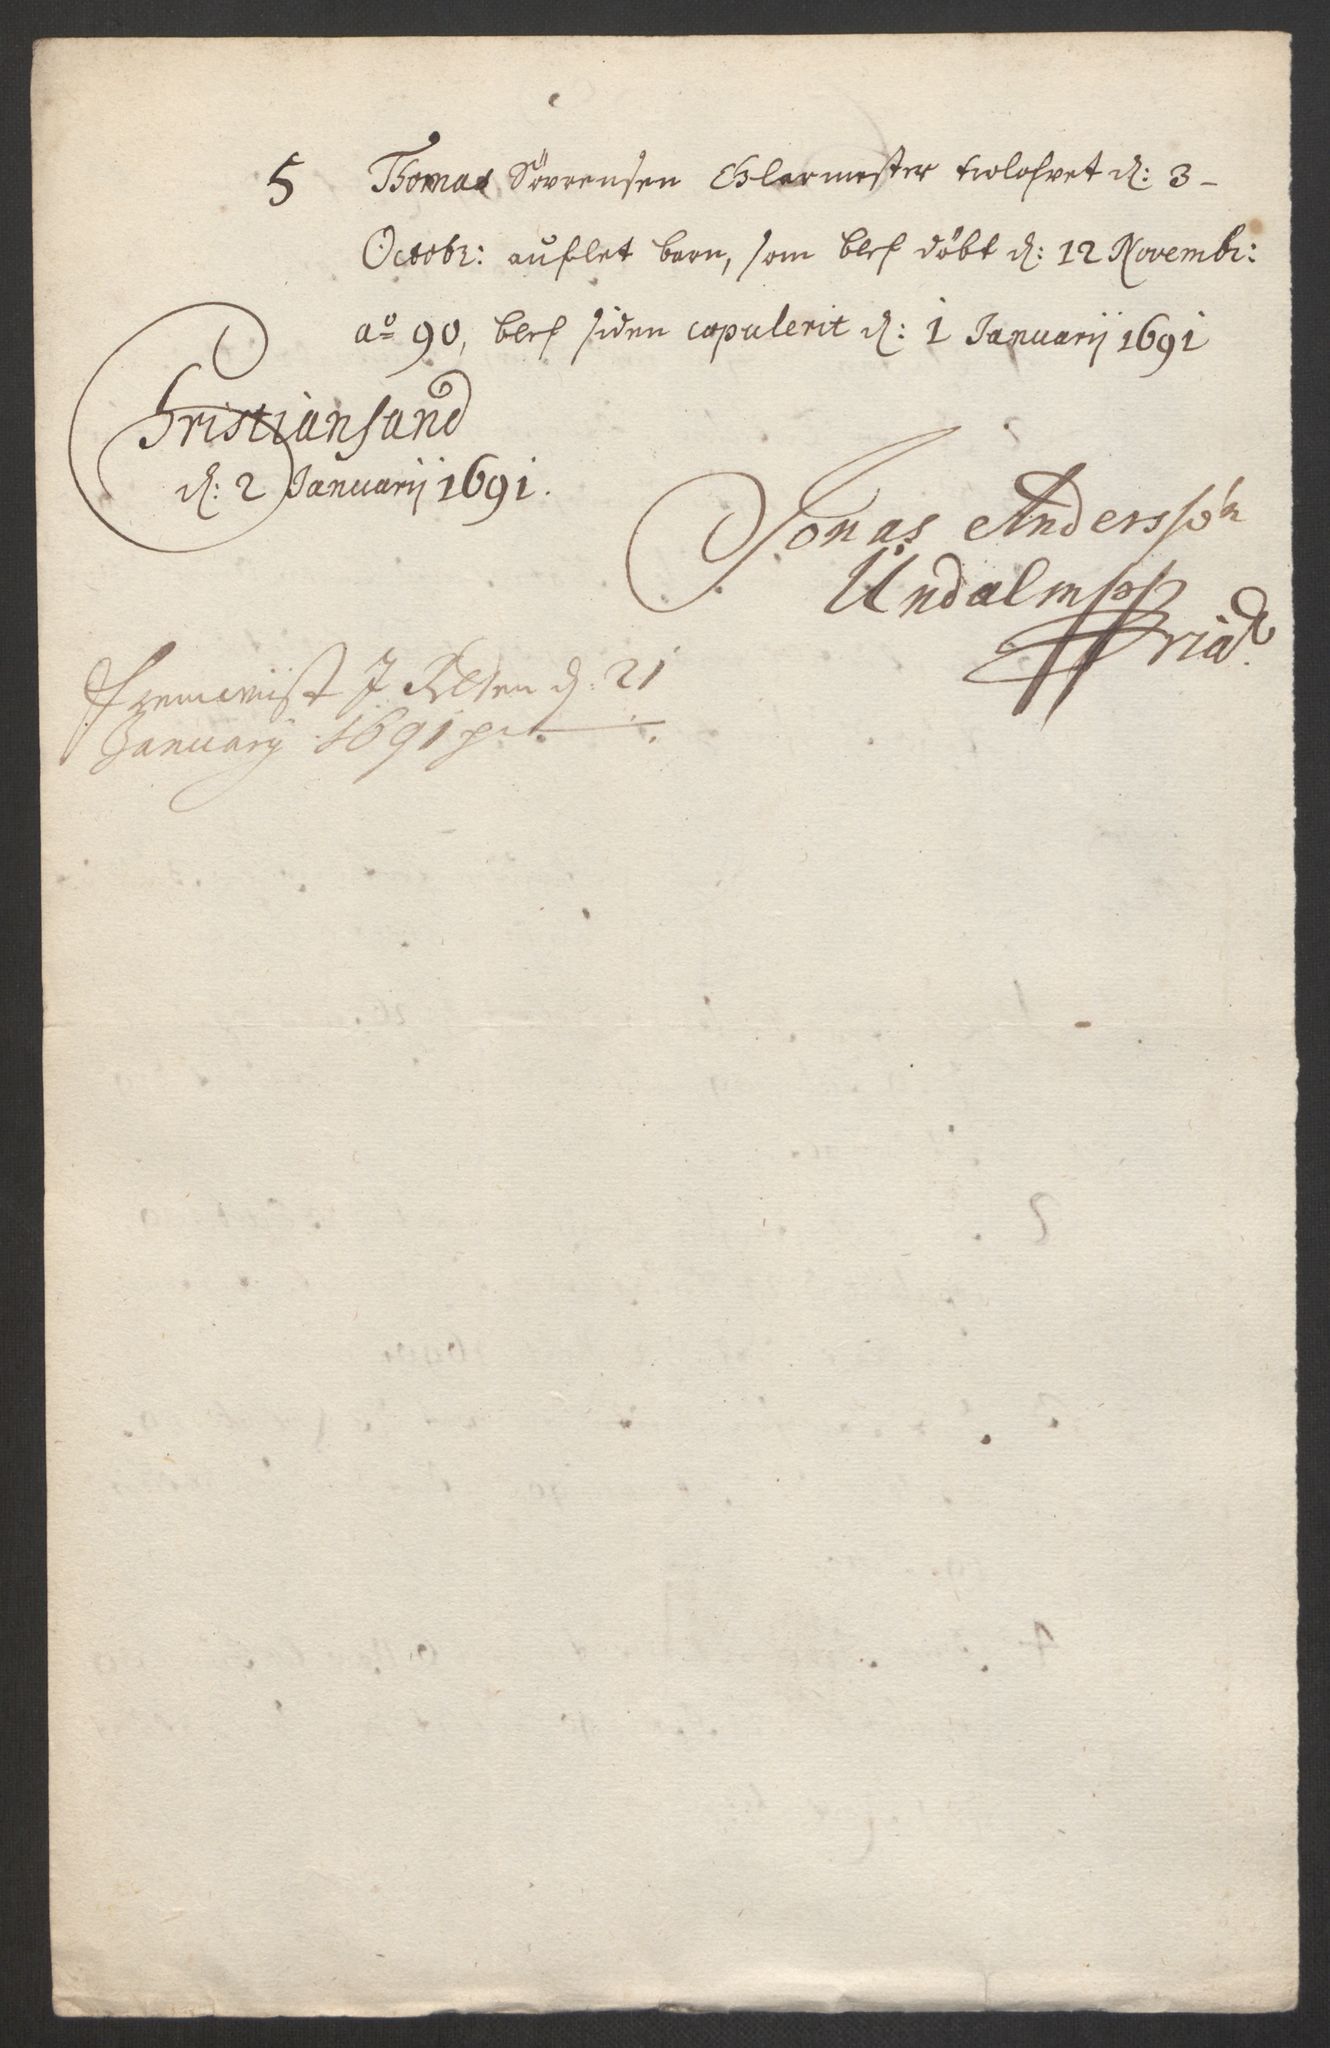 5 Thomas Sörrensen Glarmester trolofvet d: 3-
Octobr: auflet barn, som blef döbt d: 12 Novembr:
aº 90, blef siden copulerit d: 1 Januarij 1691
Christiansand
d: 2 Januarij 1691.
Jonas Anderssøn
Undalmss
Fremviist J Retten d: 21
January 1691